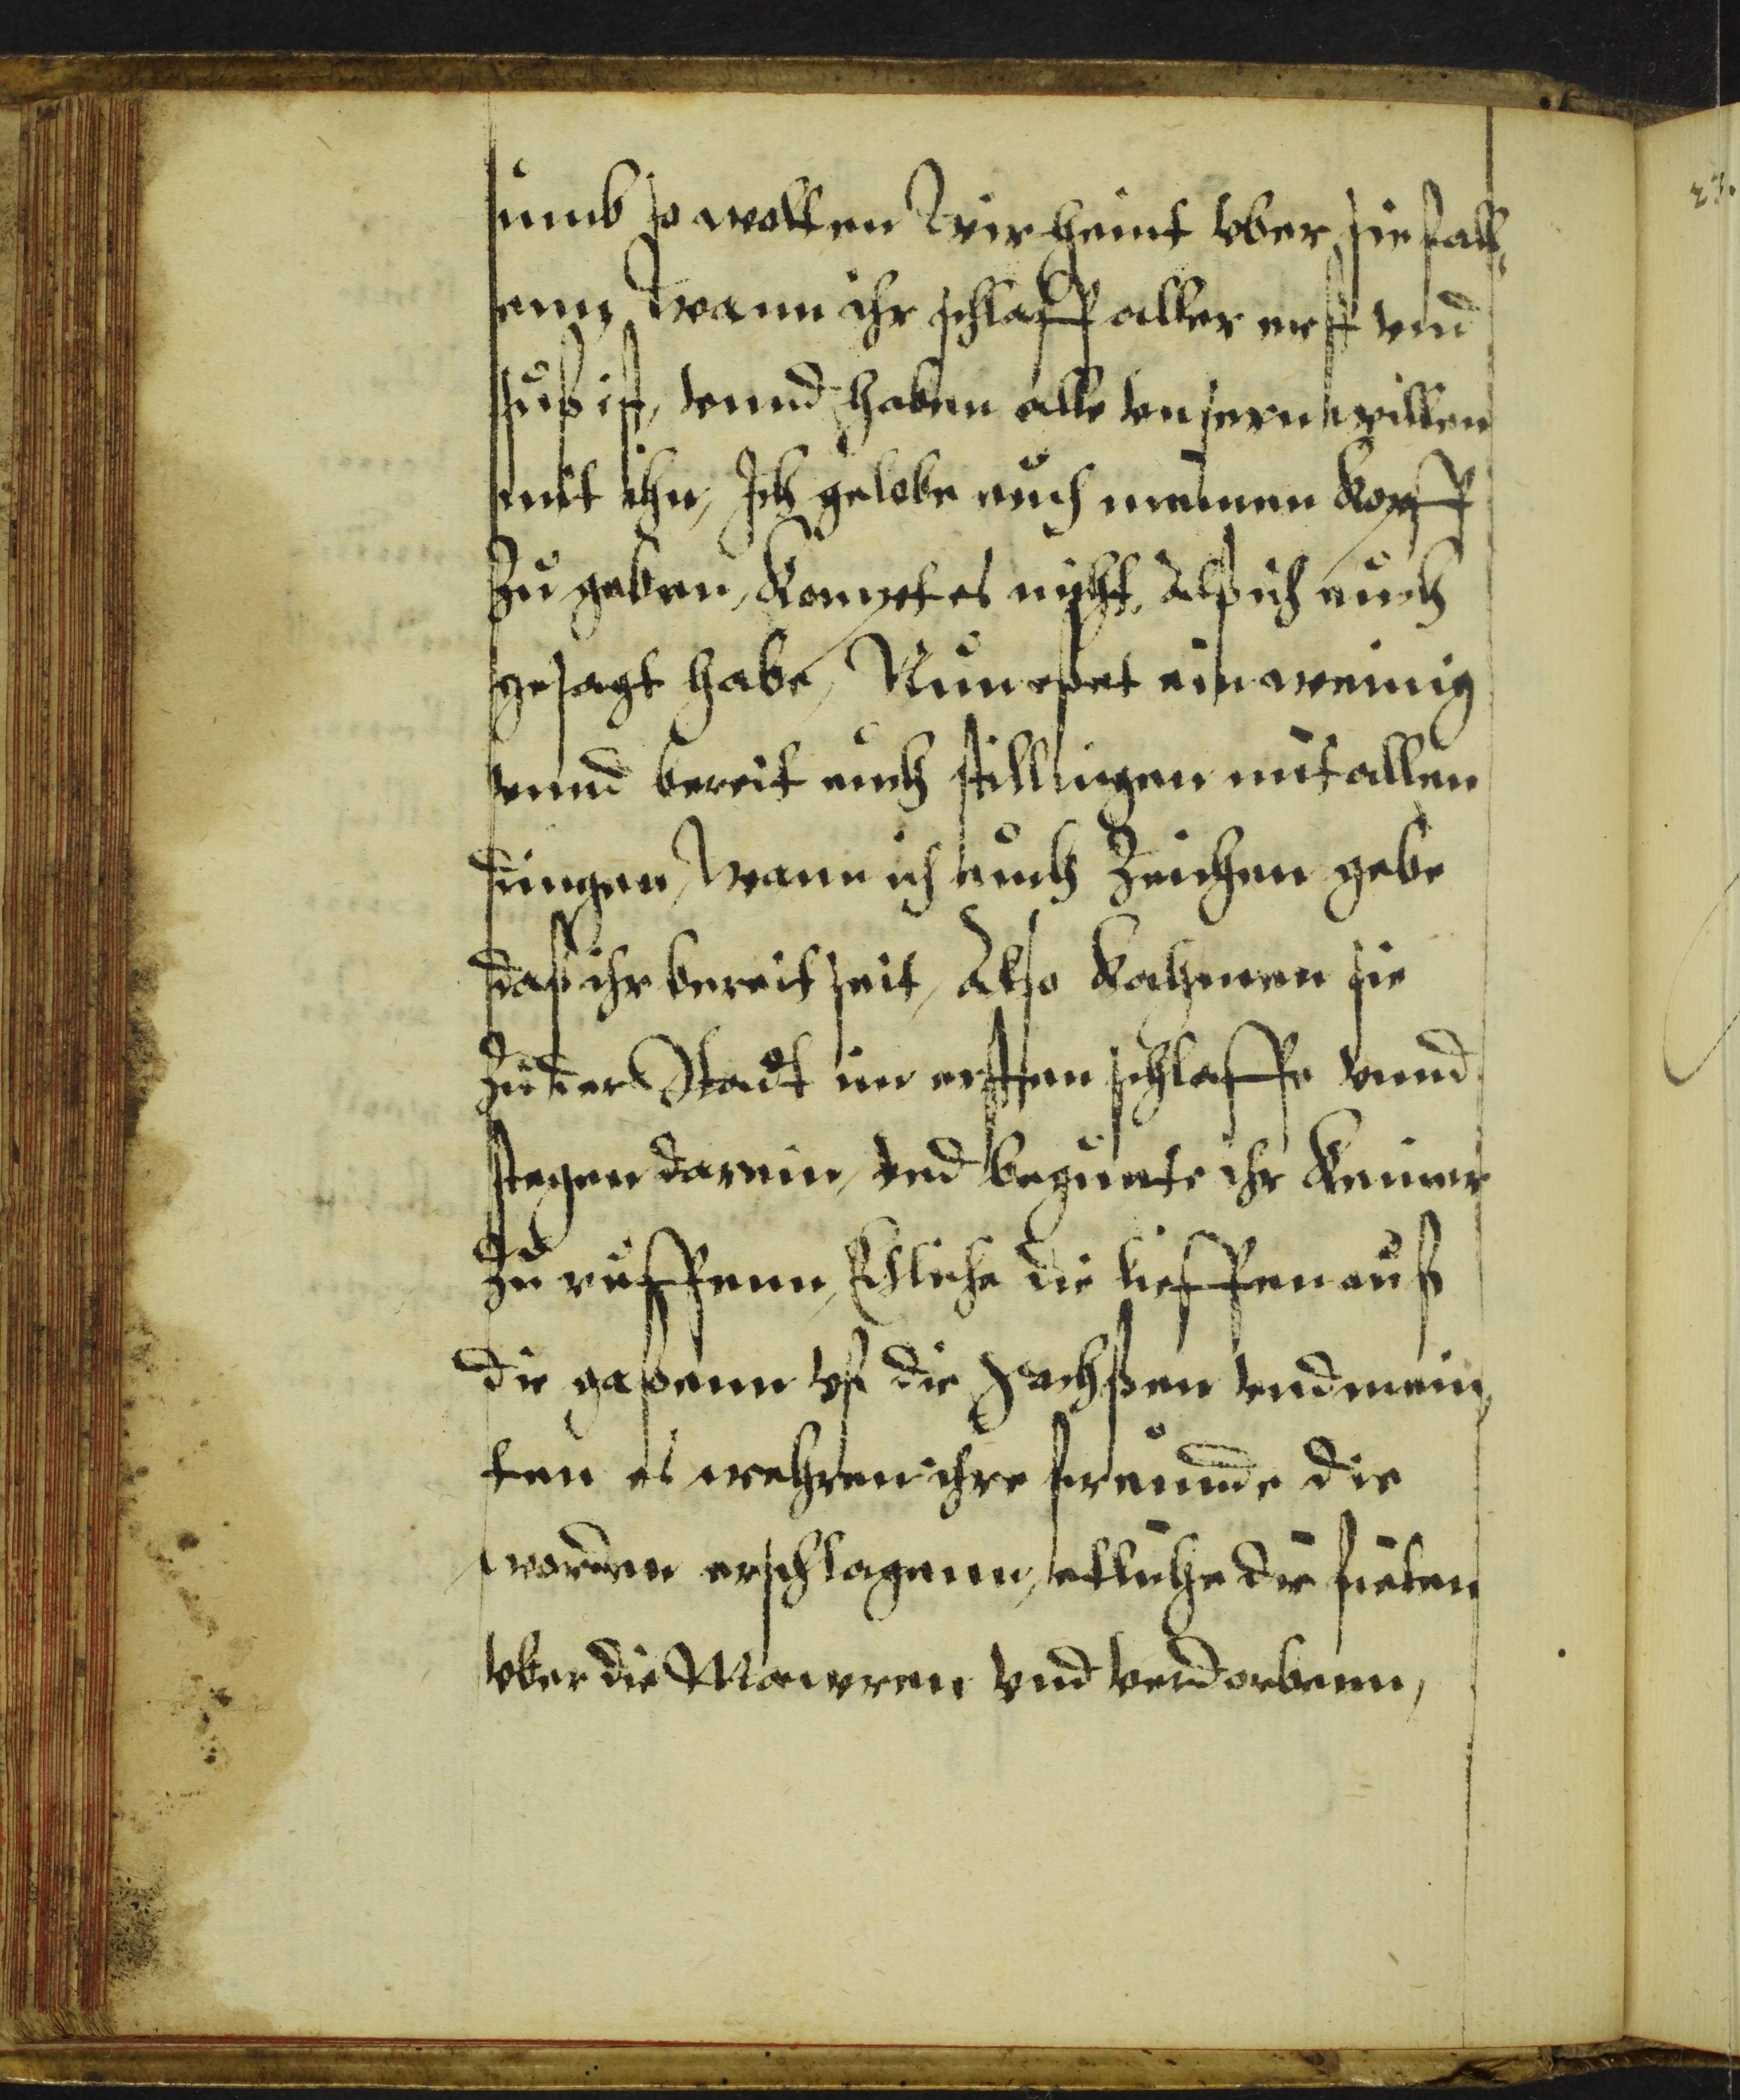 umb so wolten Wir heint vber sie fall,
enn, Wann ihr schlaff aller erst vnd
süß ist, vnnd haben alle vnsern willen
mit ihn, Ich gelobe euch meinen Kopff
Zu geben, Kompt es nicht, Alß ich euch
gesagt habe, Nun eßet ein weinig
vnnd bereit euch stillingen mit allen
dingen, Wann ich euch Zeichen gebe
daß ihr bereit seit, Also Kahmen sie
Zu der Stadt im ersten schlaffe vnnd
stegen darein, vnd begunte ihr Keiner
Zu ruffenn, Etliche die lieffen auß
die gaßenn vf die Sachßen vnd mein,
ten es wehren ihre freunde die
worden erschlagenn, etliche die fielen
vber die Mawren vnd verdorbenn,
23.